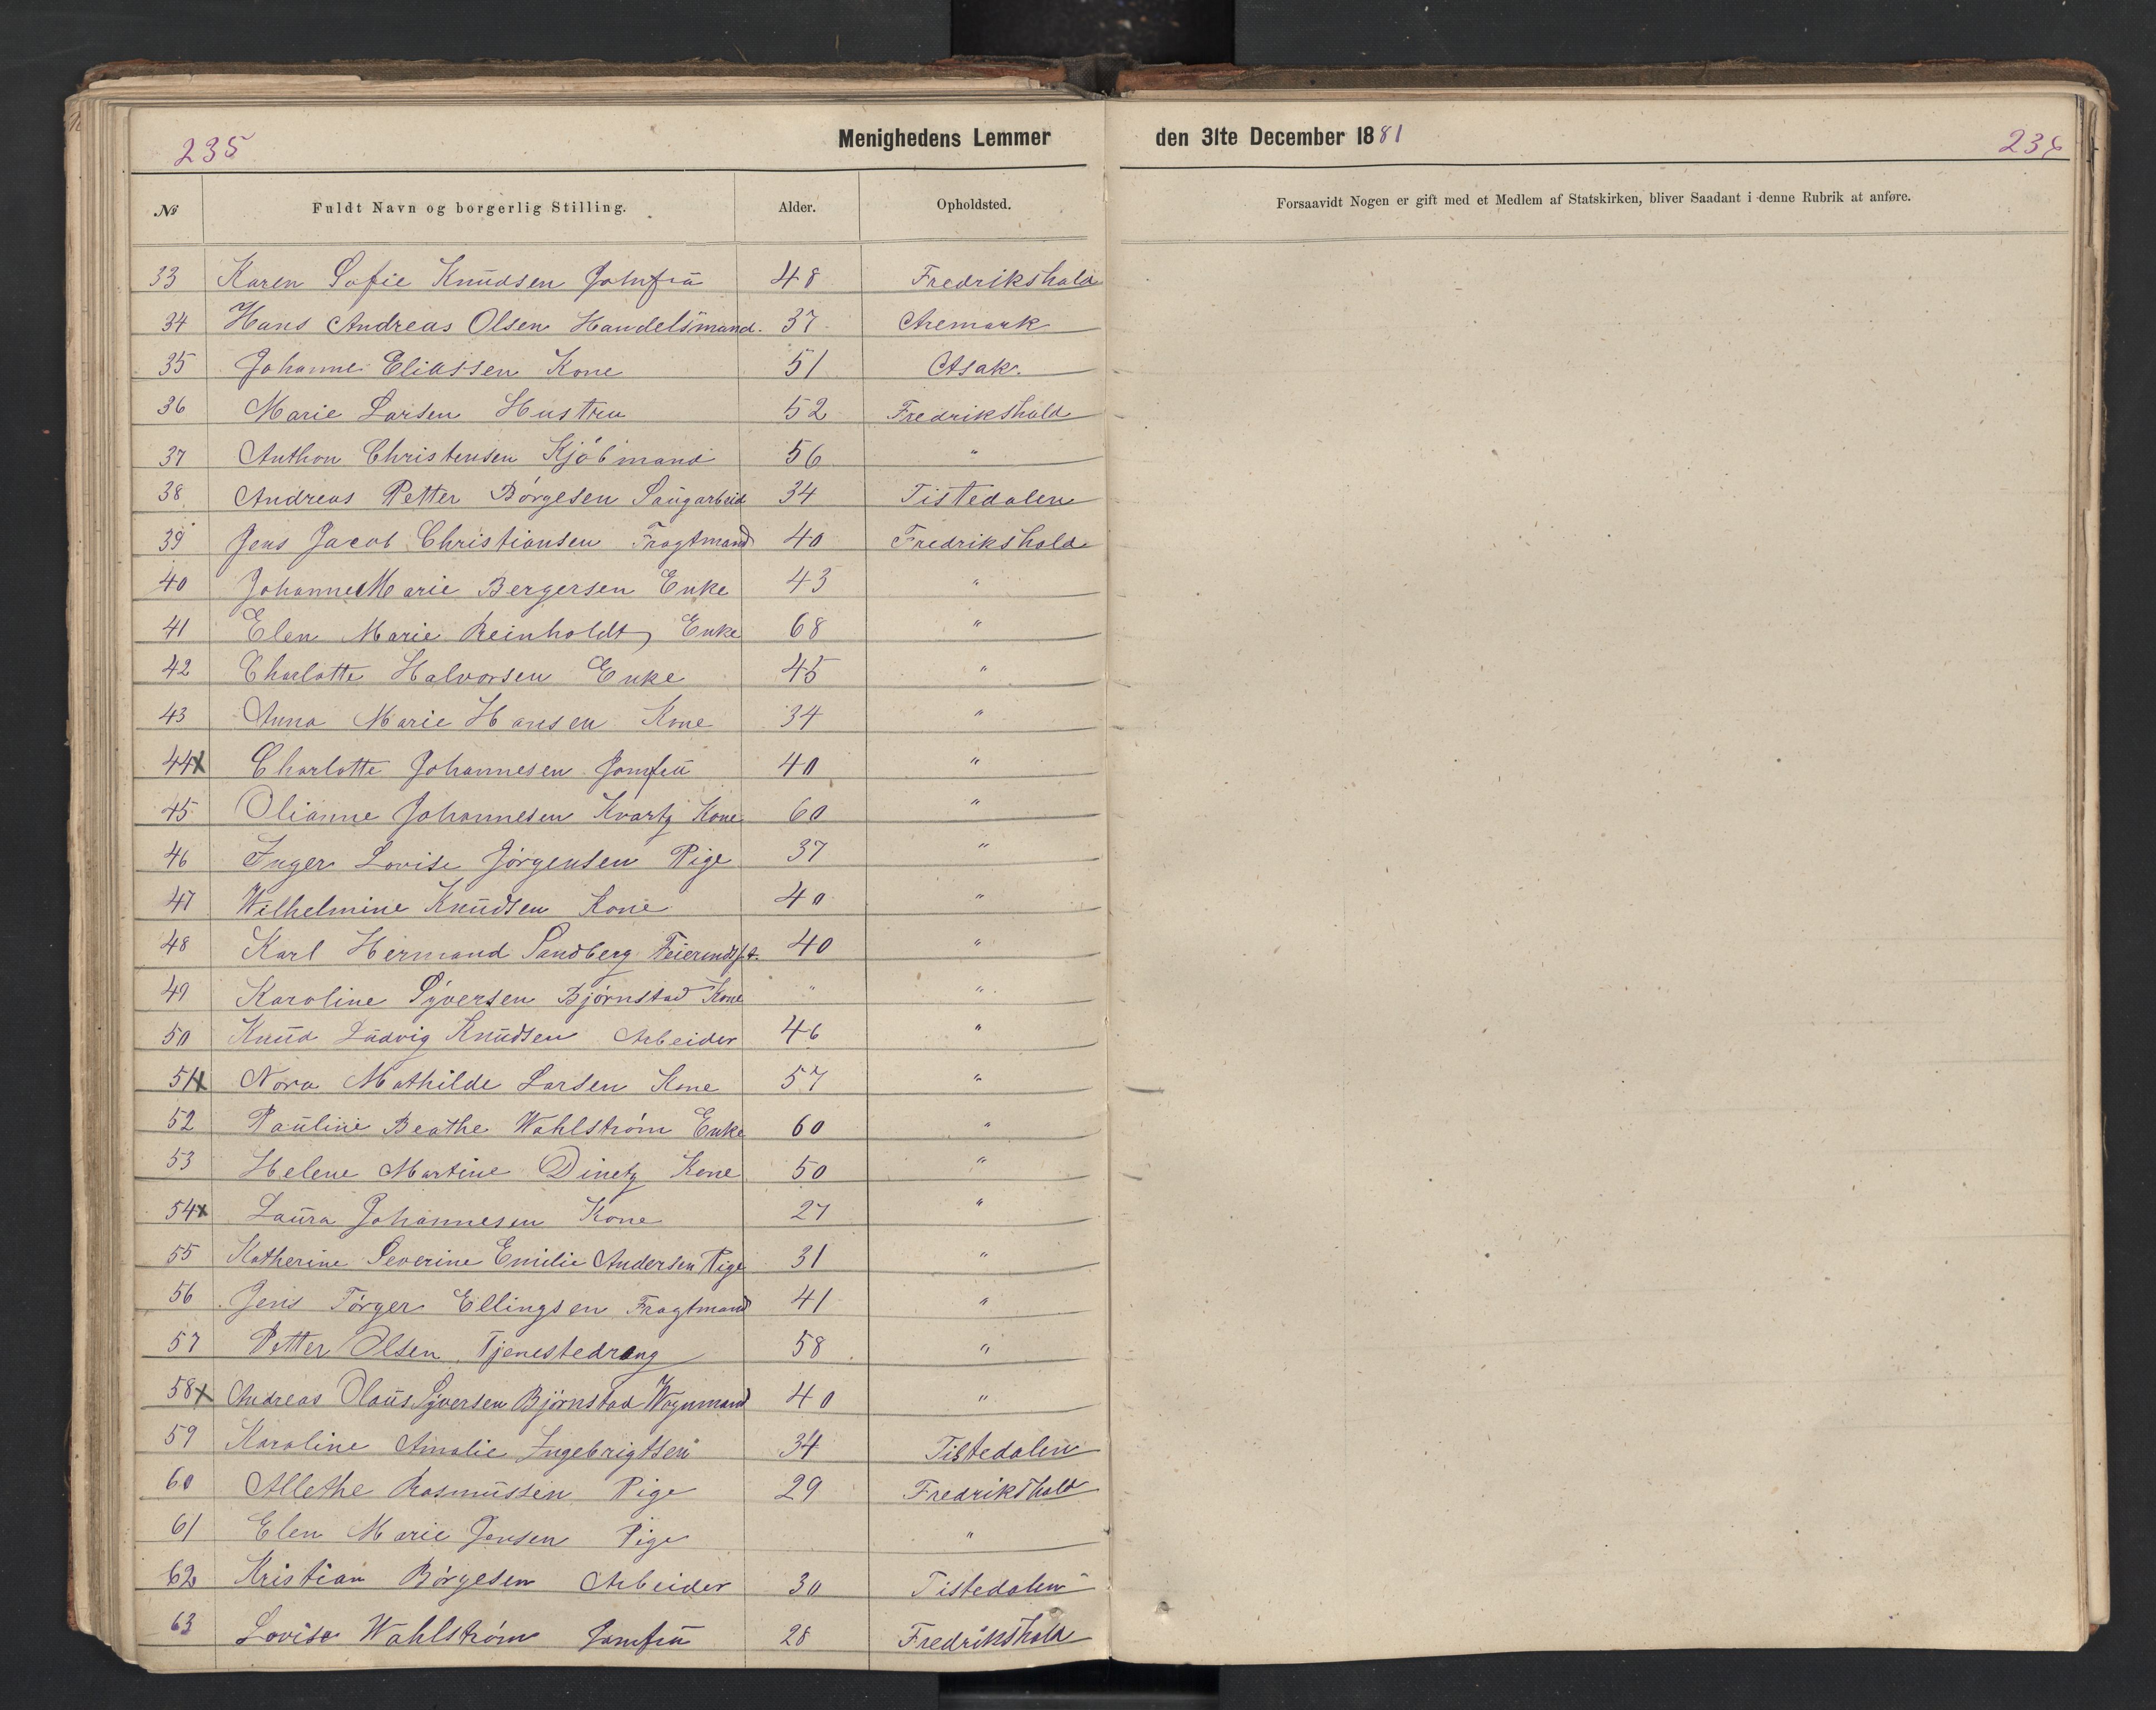 235 Menighedens Lemmer den 31te December 1881 236
№ Fuldt Navn og borgerlig Stilling. Alder. Opholdsted. Forsaavidt Nogen er gift med et Medlem af Statskirken, bliver Saadant i denne Rubrik at anføre.
33 Karen Sofie Knudsen Jomfru 48 Fredrikshald
34 Hans Andreas Olsen Handelsmand. 37 Aremark
35 Johanne Eliassen Kone 51 Asak.
36 Marie Larsen Hustru 52 Fredrikshald
37 Anthon Christensen Kjøbmand 56 "
38 Andreas Petter Børgesen Saugarbeid 34 Tistedalen
39 Jens Jacob Christiansen Fragtmand 40 Fredrikshald
40 Johanne Marie Bergersen Enke 43 "
41 Elen Marie Reinholdt, Enke 68 "
42 Charlotte Halvorsen Enke 45 "
43 Anna Marie Hansen Kone 34 "
44 x Charlotte Johannesen Jomfru 40 "
45 Olianne Johannesen Kvartz Kone 60 "
46 Inger Lovise Jørgensen Pige 37 "
47 Wilhelmine Knudsen Kone 40 "
48 Karl Hermand Sandberg 40 "
49 Karoline Syversen Bjørnstad Kone " "
50 Knud Ludvig Knudsen Arbeider 46 "
51 x Nora Mathilde Larsen Kone 57 "
52 Pauline Beathe Wahlstrøm Enke 60 "
53 Helene Martine Dinetz Kone 50 "
54 x Laura Johannesen Kone 27 "
55 Katherine Severine Emilie Andersen Pige 31 "
56 Jens Tørger Ellingsen Fragtmand 41 "
57 Petter Olsen Tjenestedreng 58 "
58 x Andreas Olaus Syversen Bjørnstad Vognmand 40 "
59 Karoline Amalie Ingebrigtsen 34 Tistedalen
60 Allethe Rasmussen Pige 29 Fredrikshald
61 Elen Marie Jensen Pige "
62 Kristian Børgesen Arbeider 30 Tistedalen
63 Lovise Wahlstrøm Jomfru 28 Fredrikshald